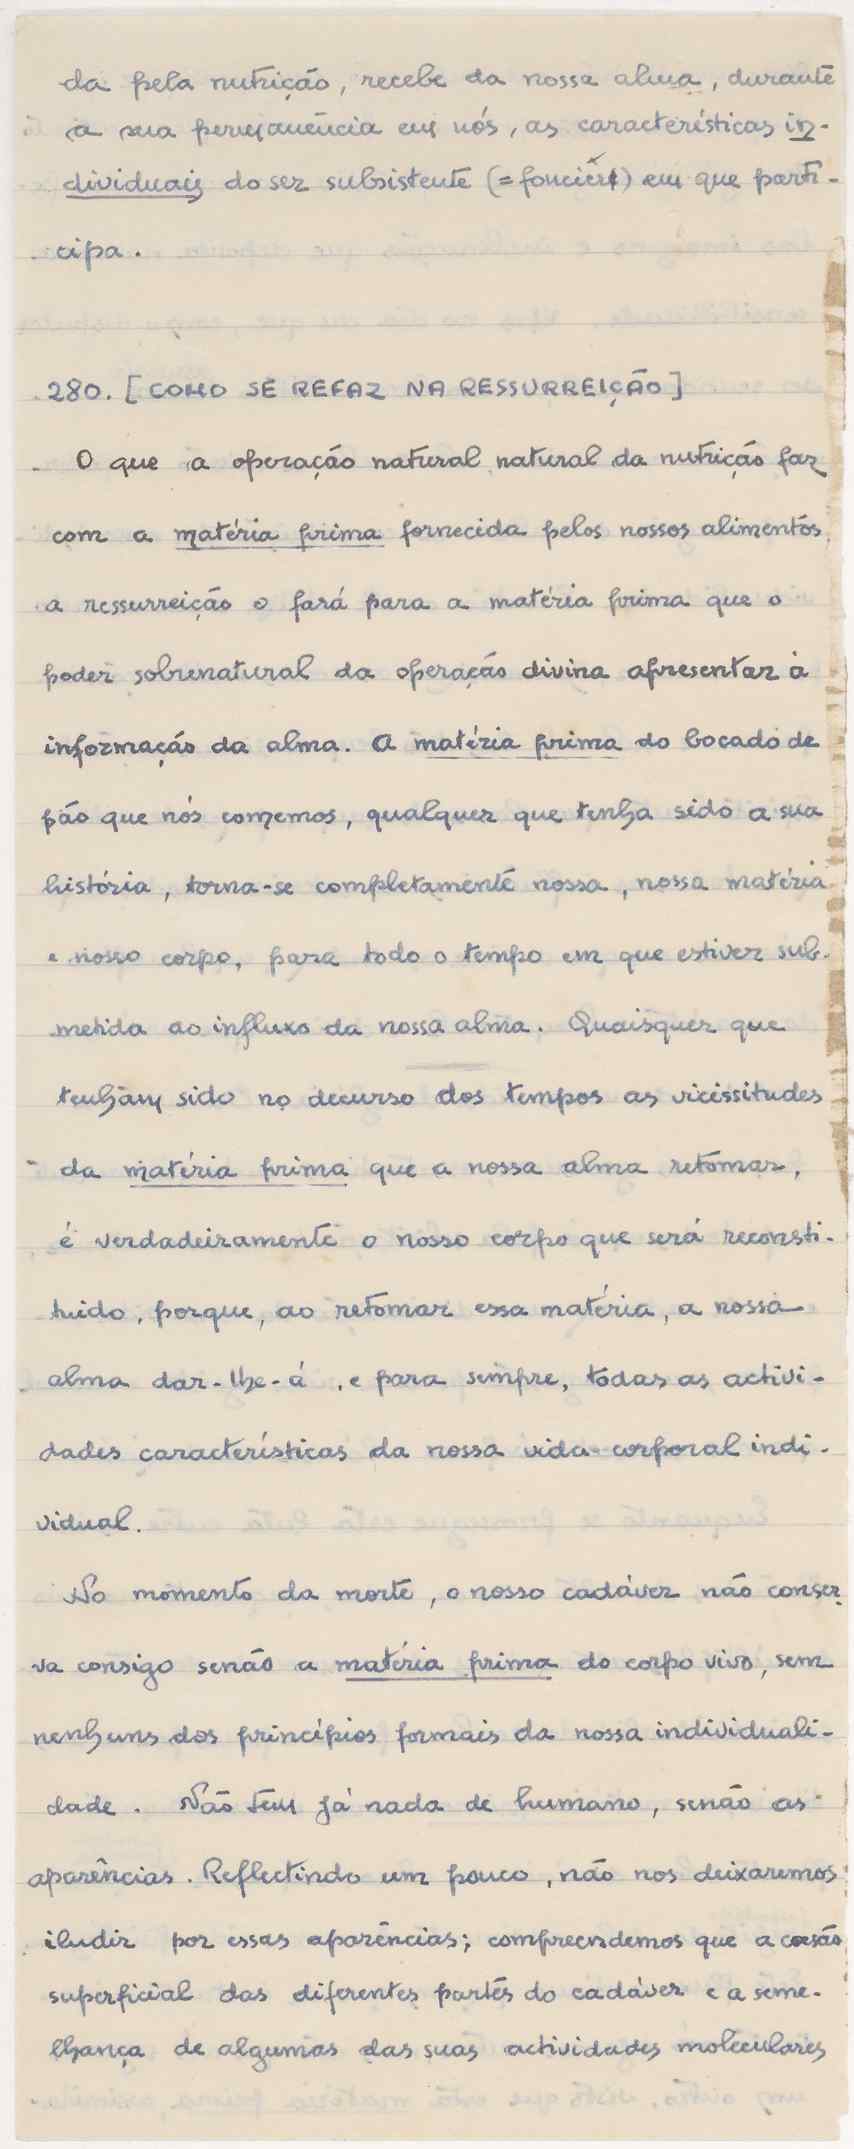 da pela nutrição, recebe da nossa alma, durante
a sua permanência em nós, as características in-
dividuais do ser subsistente (=foncier) em que parti-
cipa.
280. [COMO SE REFAZ NA RESSURREIÇÃO]
O que a operação natural natural da nutrição faz
com a matéria prima fornecida pelos nossos alimentos,
a ressurreição o fará para a matéria prima que o
poder sobrenatural da operação divina apresentar à
informação da alma. A matéria prima do bocado de
pão que nós comemos, qualquer que tenha sido a sua
história, torna-se completamente nossa, nossa matéria
e nosso corpo, para todo o tempo em que estiver sub-
metida ao influxo da nossa alma. Quaisquer que
tenham sido no decurso dos tempos as vicissitudes
da matéria prima que a nossa alma retomar,
é verdadeiramente o nosso corpo que será reconsti-
tuido, porque, ao retomar essa matéria, a nossa
alma dar-lhe-á, e para sempre, todas as activi-
dades características da nossa vida corporal indi-
vidual.
No momento da morte, o nosso cadáver não conser-
va consigo senão a matéria prima do corpo vivo, sem
nenhuns dos princípios formais da nossa individuali-
dade. Não tem já nada de humano, senão as
aparências. Reflectindo um pouco, não nos deixaremos
iludir por essas aparências; compreendemos que a coesão
superficial das diferentes partes do cadáver e a seme-
lhança de algumas das suas actividades moleculares